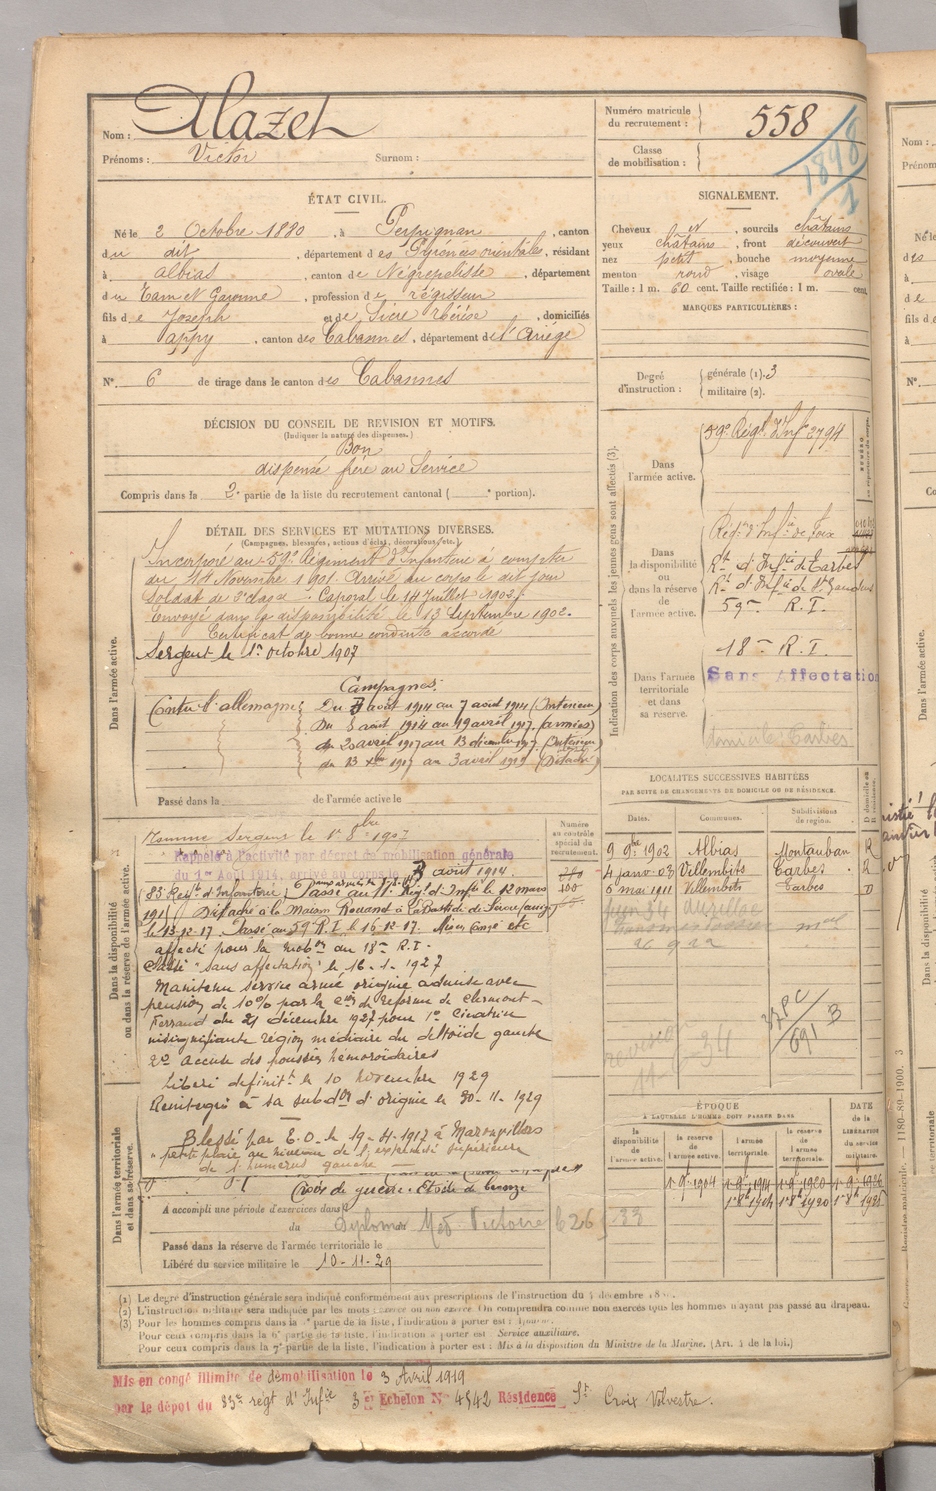 Nom : Alazet
Prénoms : Victor Surnom :
Numéro matricule du recrutement : 558
Classe de mobilisation :
1898
1
ÉTAT CIVIL.
Né le 2 Octobre 1880, à Perpignan, canton
du dit, département des Pyrénées orientales, résidant
à Albias, canton de Négrepelisse, département
du Tarn et Garonne, profession de régisseur
fils de Joseph et de Sicre Thérèse, domiciliés
à Appy, canton des Cabannes, département de l'Ariège
N° 6 de tirage dans le canton des Cabannes
SIGNALEMENT.
Cheveux et, sourcils châtains
yeux châtains, front découvert
nez petit, bouche moyenne
menton rond, visage ovale
Taille : 1 m. 60 cent. Taille rectifiée : 1 m. cent.
MARQUES PARTICULIÈRES :
Degré d'instruction : générale (1). 3
militaire (2).
DÉCISION DU CONSEIL DE REVISION ET MOTIFS.
(Indiquer la nature des dispenses.)
Bon
dispensé frère au Service
Compris dans la 2e partie de la liste du recrutement cantonal ( e portion).
DÉTAIL DES SERVICES ET MUTATIONS DIVERSES.
(Campagnes, blessures, actions d'éclat, décorations, etc.)
Dans l'armée active.
Incorporé au 59e Régiment d'Infanterie à compter
du 14 Novembre 1901. Arrivé au corps le dit jour
Soldat de 2e classe. Caporal le 14 Juillet 1902.
Envoyé dans la disponibilité le 13 Septembre 1902.
Certificat de bonne conduite accordé
Sergent le 1er octobre 1907
Campagnes :
Contre l'allemagne Du 3 août 1914 au 7 août 1914 (Intérieur)
Du 8 août 1914 au 19 avril 1917. (armées)
du 20 avril 1917 au 13 décembre 1917. (Intérieur)
du 13 Xbre 1917 au 3 avril 1919 (Détaché)
Passé dans la de l'armée active le
Indication des corps auxquels les jeunes gens sont affectés (3).
Dans l'armée active.
59e Régt d'Infie 2794
Dans la disponibilité ou dans la réserve de l'armée active.
Régt d'Infie de Foix
Rt d'Infie de Tarbes
Rt d'Infie de St Gaudens
59e R.I.
18e R.I.
Dans l'armée territoriale et dans sa réserve.
Sans Affectation
domicile Tarbes
LOCALITÉS SUCCESSIVES HABITÉES
PAR SUITE DE CHANGEMENTS DE DOMICILE OU DE RÉSIDENCE.
Dates. Communes. Subdivisions de région. D domicile ou R résidence.
9 9bre 1902 Albias Montauban R
4 janv. 03 Villembits Tarbes R
6 mai 1911 Villembits Tarbes D
Dans la disponibilité ou dans la réserve de l'armée active.
Numéro au contrôle spécial du recrutement.
Nommé Sergent le 1er 8bre 1907
Rappelé à l'activité par décret de mobilisation générale
du 1er Août 1914, arrivé au corps le 3 août 1914.
83e Regt d'Infanterie. Passé au Regt d'Infie le 12 mars
191 Détaché à la Maison Rouand à La Bastide de Sérou
le 13-12-17. Passé au 59 R.I. le 16-12-17. Mis en congé etc
affecté pour la mobon au 18e R.I.
Classé "sans affectation" le 16-1-1927
Maintenu service armé origine admise avec
pension de 10% par la Con de Réforme de Clermont-
Ferrand du 21 décembre 1927 pour 1° Cicatrice
insignifiante région médiaire du deltoïde gauche
2° accuse des poussées hémoroïdaires
Libéré définitt le 10 novembre 1929
Réintégré à sa subdon d'origine le 30-11-1929
Dans l'armée territoriale et dans sa réserve.
Blessé par E.O. le 19-4-1917 à Moronvillers
"petite plaie au niveau de l'extrémité supérieure
de l'humérus gauche
Croix de guerre. Etoile de bronze
A accompli une période d'exercices dans
du diplome Med. Victoire 626 33
Passé dans la réserve de l'armée territoriale le
Libéré du service militaire le 10-11-29
ÉPOQUE
À LAQUELLE L'HOMME DOIT PASSER DANS
la disponibilité de l'armée active. la réserve de l'armée active. l'armée territoriale. la réserve de l'armée territoriale. DATE de la LIBÉRATION du service militaire.
1er 9bre 1904 1er 9bre 1914 1er 9bre 1920 1er 9bre 1926
1er 8bre 1914 1er 8bre 1920 1er 8bre 1926
(1) Le degré d'instruction générale sera indiqué conformément aux prescriptions de l'instruction du 4 décembre 1889.
(2) L'instruction militaire sera indiquée par les mots : exercé ou non exercé. On comprendra comme non exercés tous les hommes n'ayant pas passé au drapeau.
(3) Pour les hommes compris dans la e partie de la liste, l'indication à porter est : Ajourné.
Pour ceux compris dans la 6e partie de la liste, l'indication à porter est : Service auxiliaire.
Pour ceux compris dans la 7e partie de la liste, l'indication à porter est : Mis à la disposition du Ministre de la Marine. (Art. 4 de la loi.)
Mis en congé illimité de démobilisation le 3 Avril 1919
par le dépôt du 83e regt d'Infie 3e Echelon N° 4542 Résidence St Croix Volvestre.